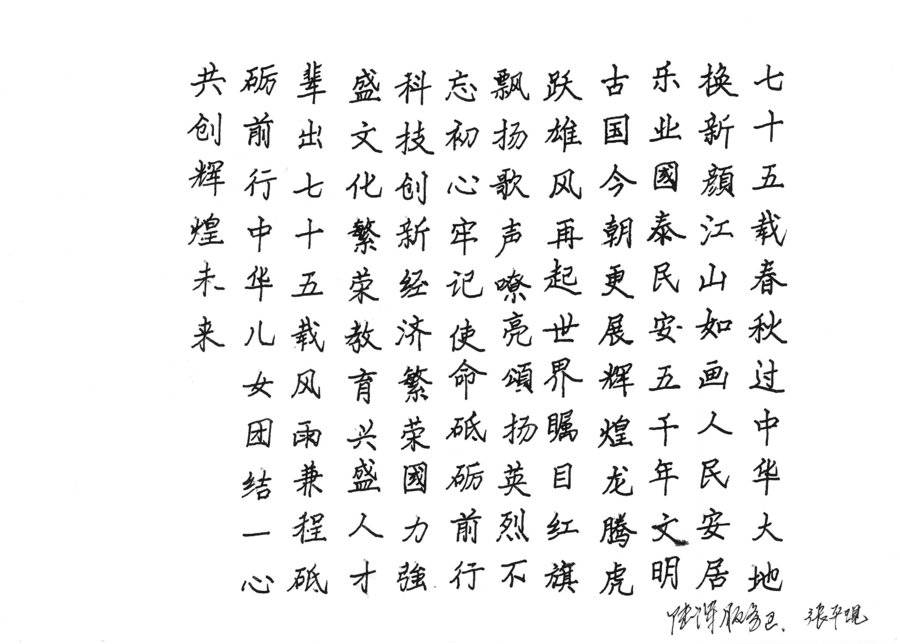 七十五载春秋过中华大地
换新顔江山如画人民安居
乐业國泰民安五千年文明
古国今朝更展辉煌龙腾虎
跃雄风再起世界瞩目红旗
飘扬歌声嘹亮頌扬英烈不
忘初心牢记使命砥砺前行
科技创新经济繁荣國力強
盛文化繁荣教育兴盛人才
辈出七十五载风雨兼程砥
砺前行中华儿女团结一心
共创辉煌未来